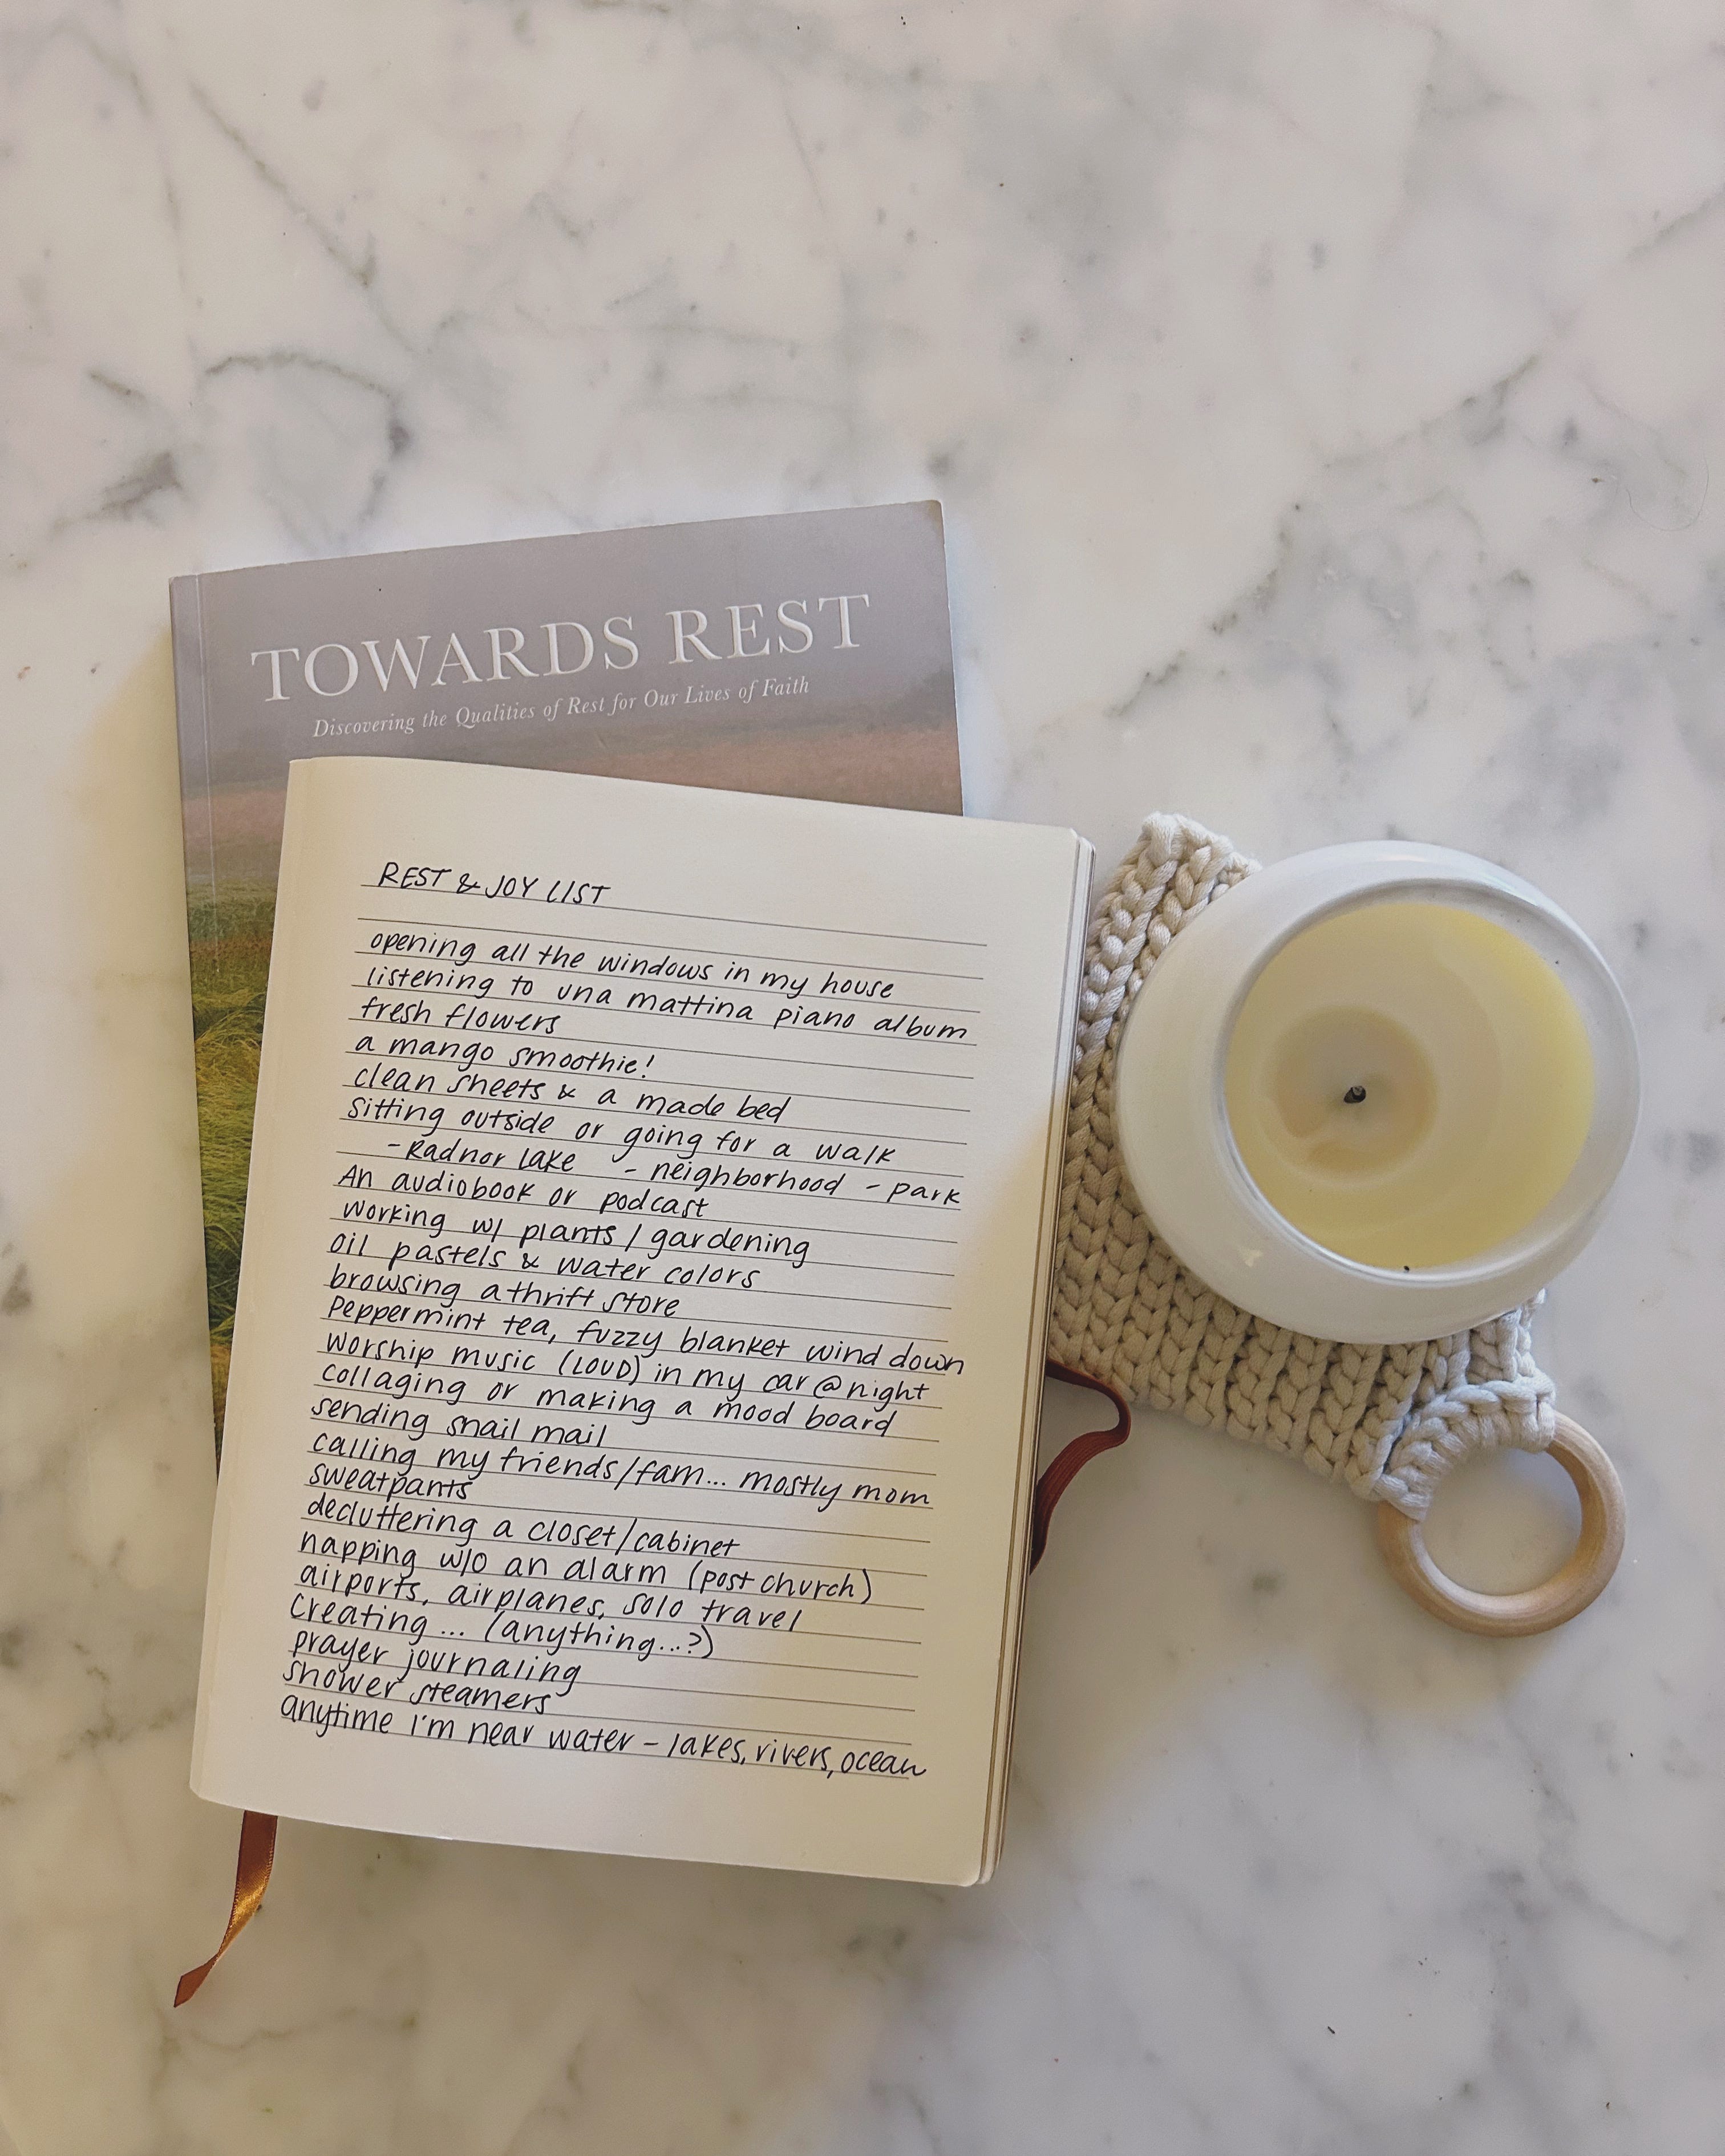 TOWARDS REST
Discovering the Qualities of Rest for Our Lives of Faith
REST & JOY LIST
opening all the windows in my house
listening to una mattina piano album
fresh flowers
a mango smoothie!
clean sheets & a made bed
sitting outside or going for a walk
- Radnor Lake - neighborhood - park
An audiobook or podcast
working w/ plants / gardening
oil pastels & water colors
browsing a thrift store
Peppermint tea, fuzzy blanket wind down
worship music (LOUD) in my car @ night
collaging or making a mood board
sending snail mail
calling my friends/fam... mostly mom
sweatpants
decluttering a closet/cabinet
napping w/o an alarm (post church)
airports, airplanes, solo travel
creating ... (anything...?)
prayer journaling
shower steamers
anytime i'm near water - lakes, rivers, ocean